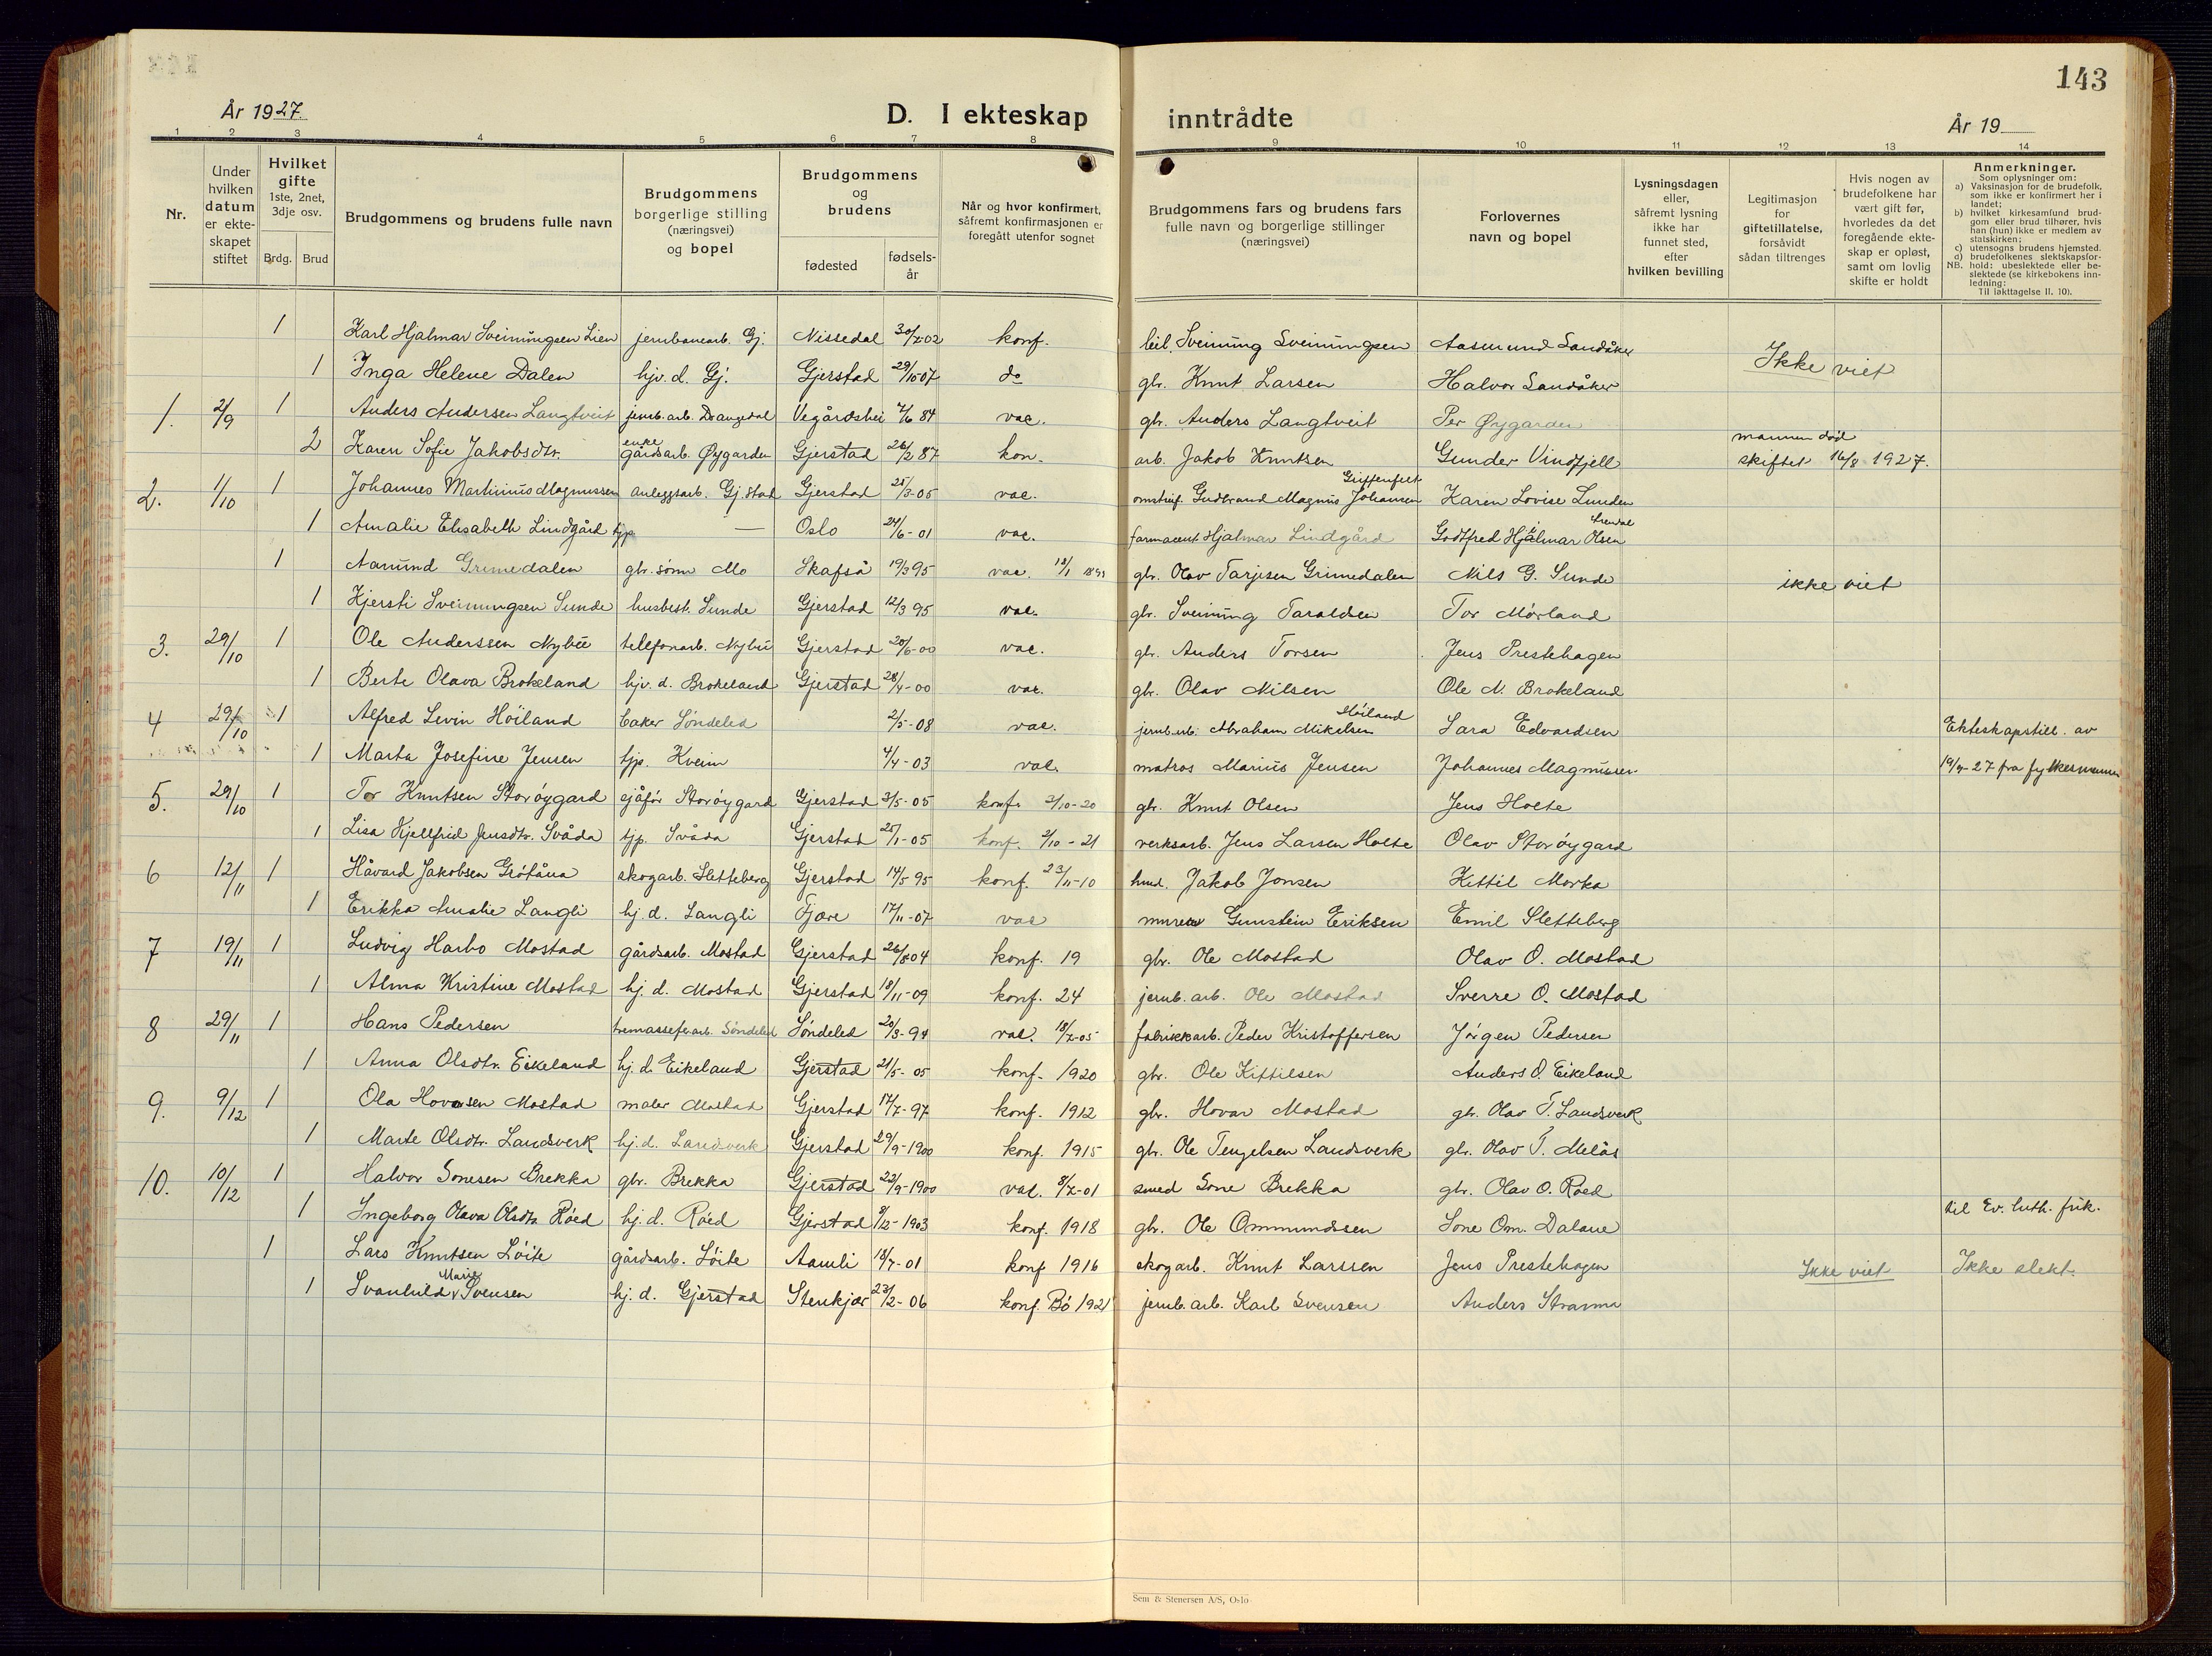 143
År 1927.
D. I ekteskap inntrådte
År 19
1 2 3 4 5 6 7 8 9 10 11 12 13 14
Nr.
Under hvilken datum er ekteskapet stiftet
Hvilket gifte 1ste, 2net, 3dje osv.
Brdg. Brud
Brudgommens og brudens fulle navn
Brudgommens borgerlige stilling (næringsvei) og bopel
Brudgommens og brudens
fødested
fødselsår
Når og hvor konfirmert, såfremt konfirmasjonen er foregått utenfor sognet
Brudgommens fars og brudens fars fulle navn og borgerlige stillinger (næringsvei)
Forlovernes navn og bopel
Lysningsdagen eller, såfremt lysning ikke har funnet sted, efter hvilken bevilling
Legitimasjon for giftetillatelse, forsåvidt sådan tiltrenges
Hvis nogen av brudefolkene har vært gift før, hvorledes da det foregående ekteskap er opløst, samt om lovlig skifte er holdt
Anmerkninger.
Som oplysninger om:
a) Vaksinasjon for de brudefolk, som ikke er konfirmert her i landet;
b) hvilket kirkesamfund brudgom eller brud tilhører, hvis han (hun) ikke er medlem av statskirken;
c) utensogns brudens hjemsted.
d) brudefolkenes slektskapsforhold: ubeslektede eller beslektede (se kirkebokens innledning:
NB.
Til iakttagelse II. 10).
1 Karl Hjalmar Sveinungsen Lien jernbanearb. Gj. Nissedal 30/7-02 konf. leil. Sveinung Sveinungsen Aasmund Sandåker Ikke viet
1 Inga Helene Dalen hjv. d. Gj. Gjerstad 29/10-07 do gbr. Knut Larsen Halvor Sandåker
1. 2/9 1 Anders Andersen Langtveit jernb. arb. Drangedal Vegårdshei 7/6 84 vac. gbr. Anders Langtveit Per Øygarden
2 Karen Sofie Jakobsdtr. enke gårdsarb. Øygarden Gjerstad 26/2 87 kon. arb. Jakob Knutsen Gunder Vindfjell mannen død skiftet 16/8 1927.
2. 1/10 1 Johannes Martinius Magnussen anleggsarb. Gj. stad Gjerstad 25/3-05 vac. Gudbrand Magnus Johansen Griffenfelt Karen Lovise Lunden
1 Amalie Elisabeth Lindgård tjp. — Oslo 24/6-01 vac. farmaceut Hjalmar Lindgård Godtfred Hjalmar Olsen Arendal
1 Aanund Grimedalen gbr. sønn Mo Skafså 19/3 95 vac. gbr. Olav Tarjesen Grimedalen Nils G. Sunde ikke viet
1 Kjersti Sveinungsen Sunde husbest. Sunde Gjerstad 12/3 95 vac. gbr. Sveinung Taraldsen Tor Mørland
3. 29/10 1 Ole Anderssen Nybu telefonarb. Nybu Gjerstad 20/6-00 vac. gbr. Anders Torsen Jens Prestehagen
1 Berte Olava Brokeland hjv. d. Brokeland Gjerstad 28/4-00 vac. gbr. Olav Nilsen Ole N. Brokeland
4 29/10 1 Alfred Levin Höiland baker Söndeled 2/5-08 vac. jernb. arb. Abraham Mikelsen Höiland Sara Edvardsen Ekteskapstill. av
1 Marta Josefine Jensen tjp. Kveim 4/4-03 vac. matros Marius Jensen Johannes Magnussen 19/9-27 fra fylkesmannen
5. 29/10 1 Tor Knutsen Storøygard sjåför Storöygard Gjerstad 3/5-05 konf. 3/10-20 gbr. Knut Olsen Jens Holte
1 Lisa Kjellfrid Jensdtr. Svåda tjp. Svåda Gjerstad 25/1-05 konf. 2/10-21 verksarb. Jens Larsen Holte Olav Storöygard
6 12/11 1 Håvard Jakobsen Grötåna skogarb. Sletteberg Gjerstad 14/5 95 konf. 23/11-10 Jakob Jonsen Kittil Morka
1 Erikka Amalie Langli hj. d. Langli Fjære 17/11-07 vac murer Gunstein Eriksen Emil Sletteberg
7 19/11 1 Ludvig Harbo Mostad gårdsarb. Mostad Gjerstad 26/8 04 konf. 19 gbr. Ole Mostad Olav O. Mostad
1 Alma Kristine Mostad hj. d. Mostad Gjerstad 18/11-09 konf. 24 jernb. arb. Ole Mostad Sverre O. Mostad
8 29/11 1 Hans Pedersen tremassefa.arb. Söndeled Söndeled 20/3-94 vac. 18/7-05 fabrikkarb. Peder Kristoffersen Jörgen Pedersen
1 Anna Olsdtr. Eikeland hj. d. Eikeland Gjerstad 21/5-05 konf. 1920 gbr. Ole Kittilsen Anders O. Eikeland
9. 9/12 1 Ola Hovarsen Mostad maler Mostad Gjerstad 17/7-97 konf. 1912 gbr. Hovar Mostad gbr. Olav T. Landsverk
1 Marte Olsdtr. Landsverk hj. d. Landsverk Gjerstad 29/9-1900 konf. 1915 gbr. Ole Tengelsen Landsverk gbr. Olav T. Melås
10. 10/12 1 Halvor Sonesen Brekka gbr. Brekka Gjerstad 22/9-1900 vac. 8/7-01 smed Sone Brekka gbr. Olav O. Röed
1 Ingeborg Olava Olsdtr. Röed hj. d. Röed Gjerstad 9/12-1903 konf. 1918 gbr. Ole Ommundsen Sone Om. Dalane til Ev. luth. frik.
1 Lars Knutsen Löite gårdsarb. Löite Aamli 18/7-01 konf 1916 skogarb. Knut Larssen Jens Prestehagen Ikke viet Ikke slekt.
1 Svanhild Marie Svensen hj. d. Gjerstad Stenkjær 23/2-06 konf. Bö 1921 jernb. arb. Karl Svensen Anders Stramna
Sem & Stenersen A/S, Oslo